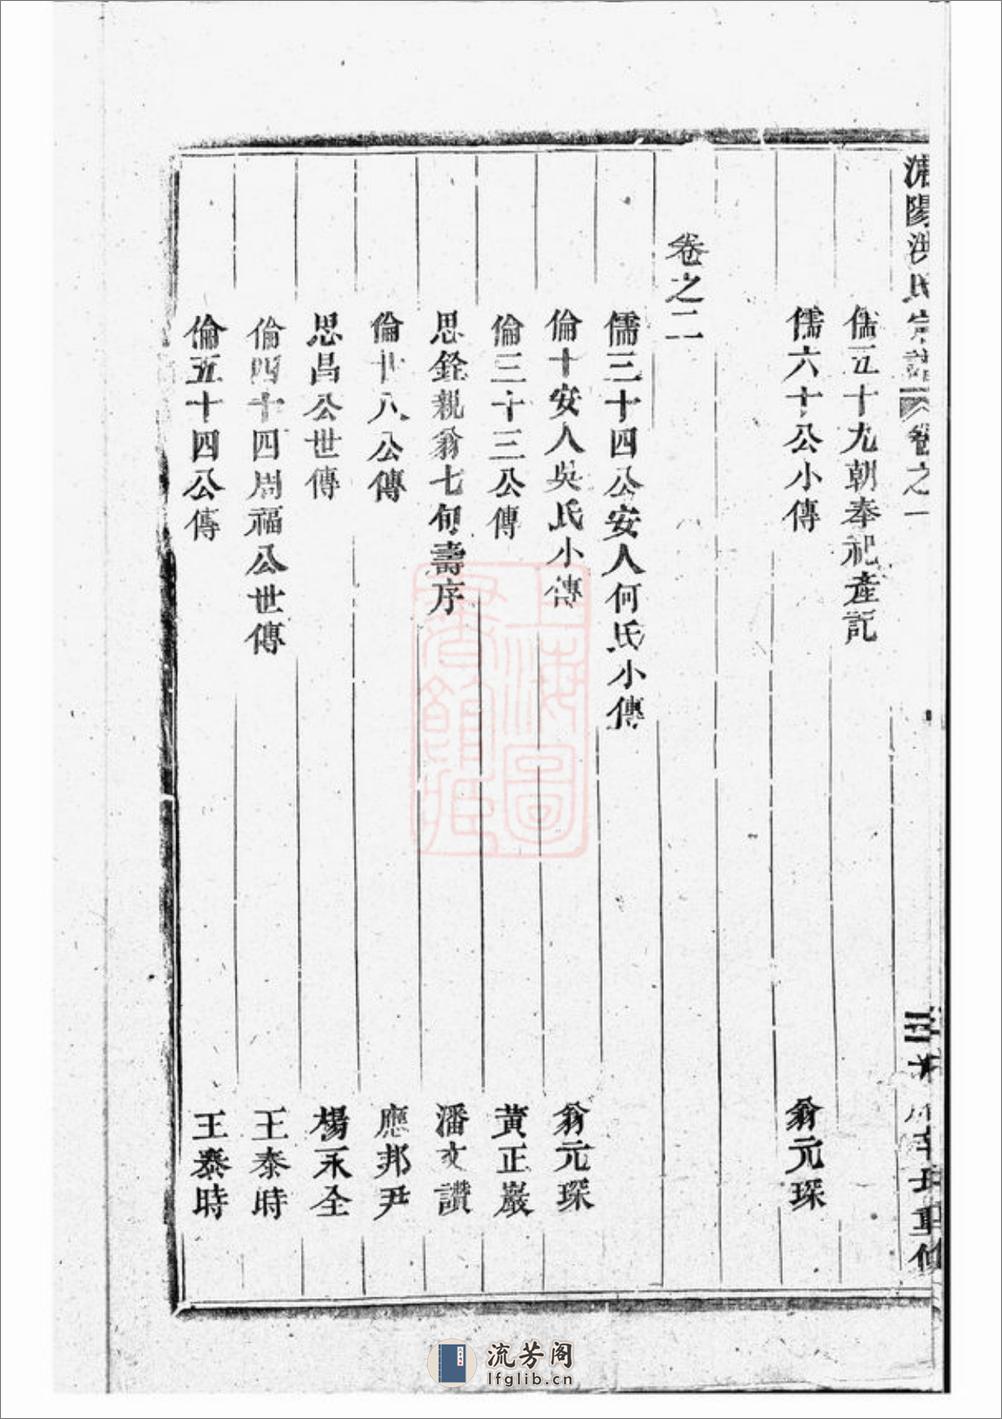 陽洪氏宗譜 卷之一
儒五十九朝奉祀產記
儒六十公小傳 翁元琛
卷之二
儒三十四公安人何氏小傳
倫十安人吳氏小傳 翁元琛
倫三十三公傳 黃正巖
思銓親翁七旬壽序 潘文讚
倫廿八公傳 應邦尹
思昌公世傳 楊永全
倫四十四周福公世傳 王泰時
倫五十四公傳 王泰時
重修
上海圖書館藏
流芳阁
lfglib.cn